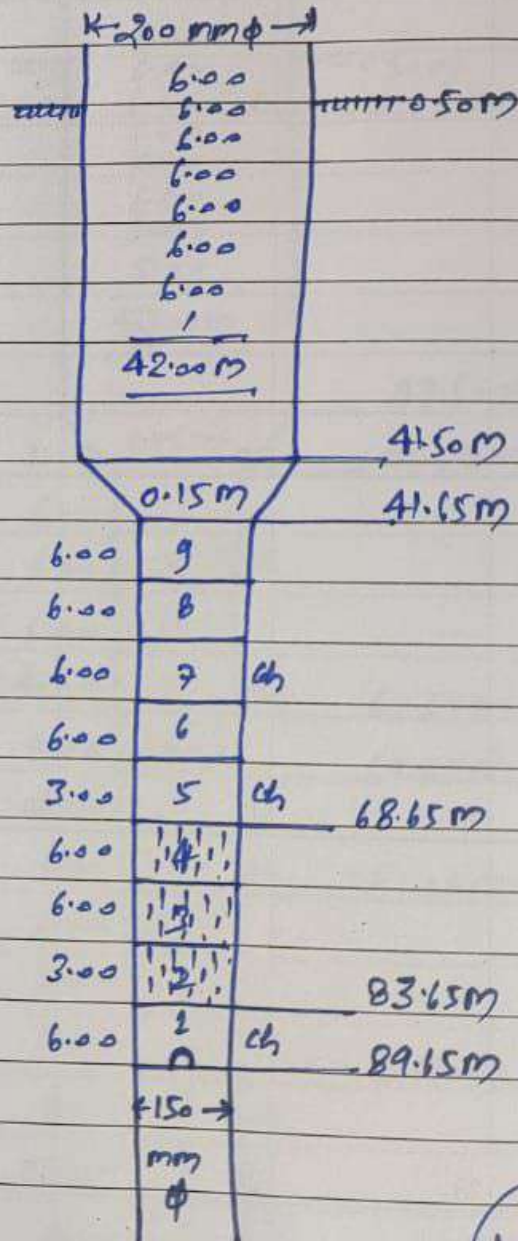 200 mm ϕ
6.00
6.00 0.50m
6.00
6.00
6.00
6.00
6.00
42.00m
41.50m
0.15m 41.65m
6.00 9
6.00 8
6.00 7 ch
6.00 6
3.00 5 ch
68.65m
6.00 4
6.00 3
3.00 2
83.65m
6.00 1 ch
89.65m
150
mm
ϕ